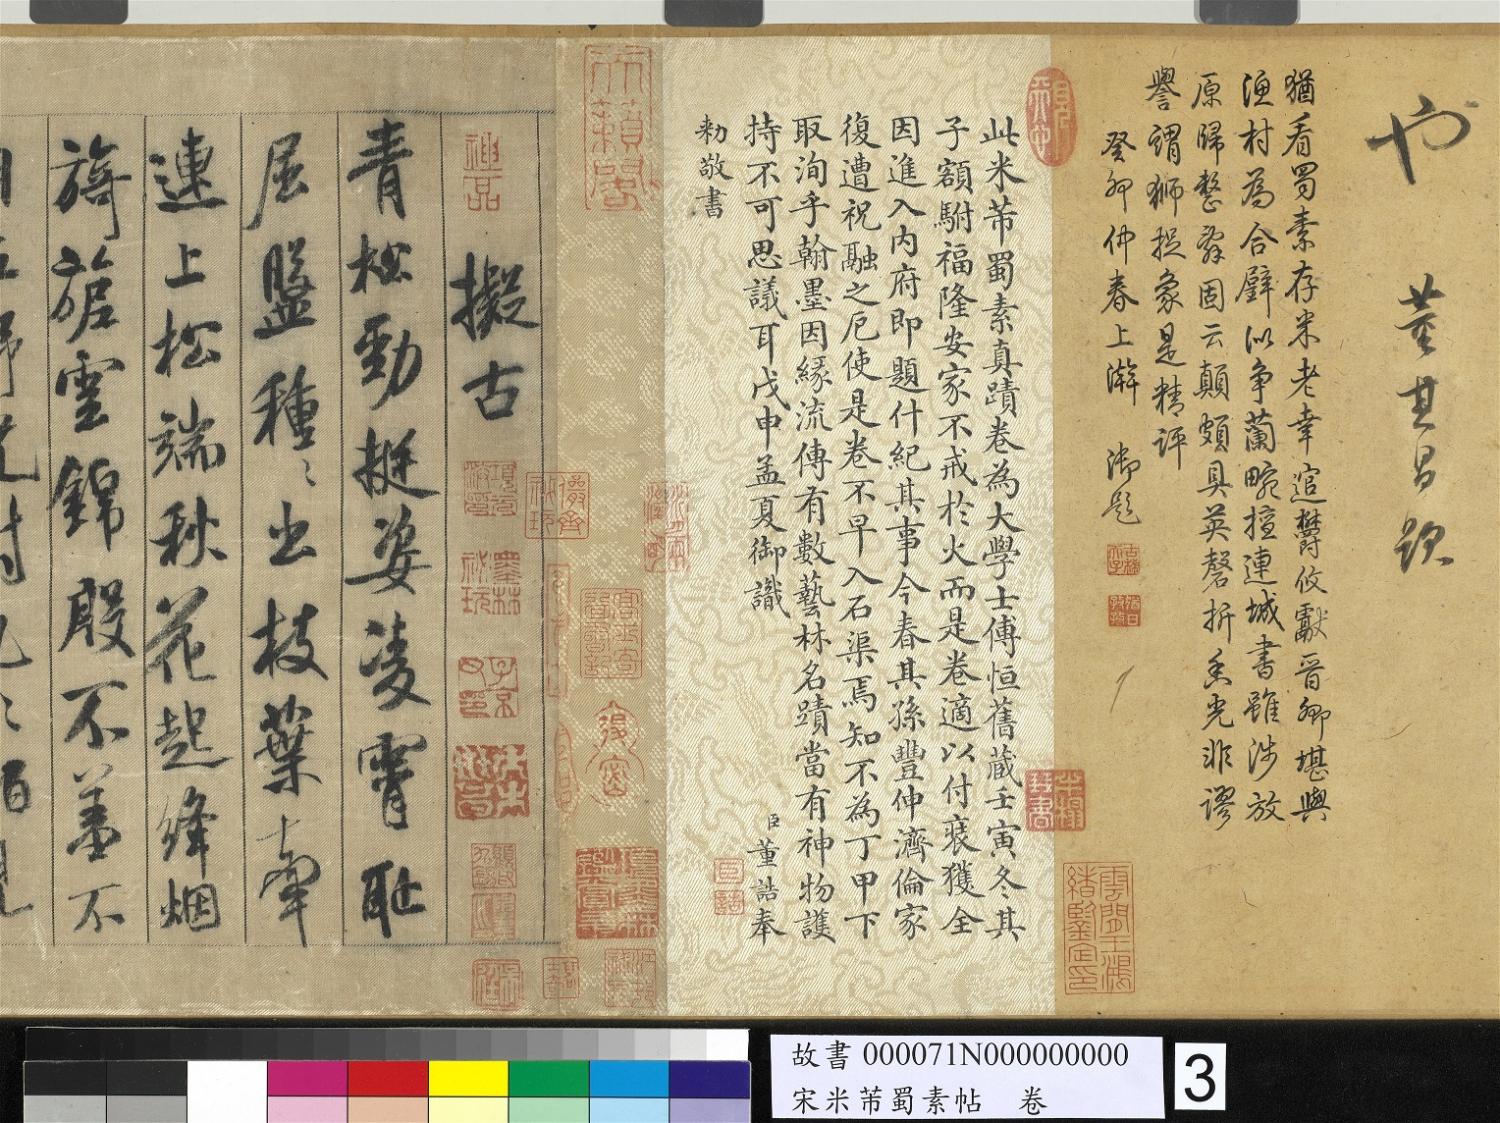 也
董其昌題
猶看蜀素存米老幸逭欝攸獻晉卿堪與
漁村為合璧以爭蘭畹擅連城書雖涉放
原歸整辭固云顛頗具英磬折香光非謬
譽謂獅捉象是精評
癸卯仲春上澣 御題
此米芾蜀素真蹟卷為大學士傅恒舊藏壬寅冬其
子額駙福隆安家不戒於火而是卷適以付裝獲全
因進入內府即題什紀其事今春其孫豐伸濟倫家
復遭祝融之厄使是卷不早入石渠焉知不為丁甲下
取洵乎翰墨因緣流傳有數藝林名蹟當有神物護
持不可思議耳戊申孟夏御識
臣董誥奉
勅敬書
擬古
青松勁挺姿凌霄恥
屈盤種種出枝葉牽
連上松端秋花起絳烟
旖旎雲錦殷不羞不
故書 000071N000000000
宋米芾蜀素帖 卷
3